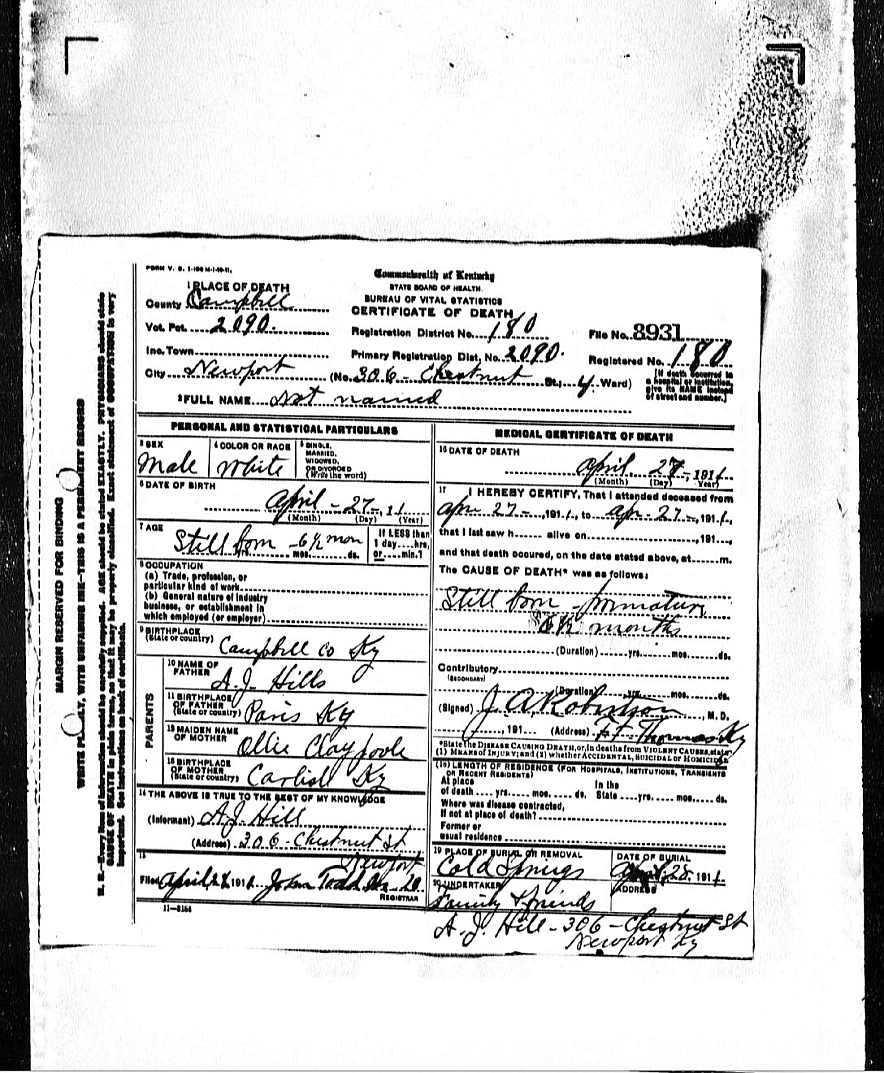 FORM V. S. 1-100 M-1-10-11.
Commonwealth of Kentucky
STATE BOARD OF HEALTH.
BUREAU OF VITAL STATISTICS
CERTIFICATE OF DEATH
1 PLACE OF DEATH
County Campbell
Vot. Pct. 2090.
Registration District No. 180
File No. 8931
Inc. Town
Primary Registration Dist. No. 2090.
Registered No. 180
City Newport (No. 306 - Chestnut St.; 4 Ward)
[If death occurred in
a hospital or institution,
give its NAME instead
of street and number.]
2 FULL NAME Not named
PERSONAL AND STATISTICAL PARTICULARS
3 SEX
Male
4 COLOR OR RACE
White
5 SINGLE,
MARRIED,
WIDOWED,
OR DIVORCED
(Write the word)
6 DATE OF BIRTH
April - 27 - 11
(Month) (Day) (Year)
7 AGE
Still born - 6½ mon
mos. ds.
If LESS than
1 day....hrs.
or....min.?
8 OCCUPATION
(a) Trade, profession, or
particular kind of work
(b) General nature of industry
business, or establishment in
which employed (or employer)
9 BIRTHPLACE
(State or country) Campbell Co Ky
PARENTS
10 NAME OF
FATHER A. J. Hills
11 BIRTHPLACE
OF FATHER
(State or country) Paris Ky
12 MAIDEN NAME
OF MOTHER Ollie Claypoole
13 BIRTHPLACE
OF MOTHER
(State or country) Carlisle Ky
14 THE ABOVE IS TRUE TO THE BEST OF MY KNOWLEDGE
(Informant) A. J. Hill
(Address) 306 - Chestnut St
Newport
15
Filed April 191 John Todd
REGISTRAR
11-8184
MEDICAL CERTIFICATE OF DEATH
16 DATE OF DEATH
April 27, 1911
(Month) (Day) Year)
17 I HEREBY CERTIFY, That I attended deceased from
Apr 27 -, 191 1, to Apr - 27 -, 191 1,
that I last saw h alive on , 191 ,
and that death occured, on the date stated above, at m.
The CAUSE OF DEATH* was as follows:
Still born - premature
6½ months
(Duration) yrs. mos. ds.
Contributory
(SECONDARY)
(Duration) yrs. mos. ds.
(Signed) J. A. Robertson, M. D.
, 191 (Address) Ft Thomas Ky
*State the DISEASE CAUSING DEATH, or, in deaths from VIOLENT CAUSES, state
(1) MEANS OF INJURY; and (2) whether ACCIDENTAL, SUICIDAL or HOMICIDAL
(18) LENGTH OF RESIDENCE (FOR HOSPITALS, INSTITUTIONS, TRANSIENTS
OR RECENT RESIDENTS)
At place
of death yrs. mos. ds.
In the
State yrs. mos. ds.
Where was disease contracted,
If not at place of death?
Former or
usual residence
19 PLACE OF BURIAL OR REMOVAL
Cold Springs
DATE OF BURIAL
April 28, 1911
20 UNDERTAKER
Family & friends
ADDRESS
A. J. Hill - 306 - Chestnut St
Newport Ky
MARGIN RESERVED FOR BINDING
WRITE PLAINLY, WITH UNFADING INK—THIS IS A PERMANENT RECORD
N. B.—Every item of information should be carefully supplied. AGE should be stated EXACTLY. PHYSICIANS should state
CAUSE OF DEATH in plain terms, so that it may be properly classified. Exact statement of OCCUPATION is very
important. See instructions on back of certificate.